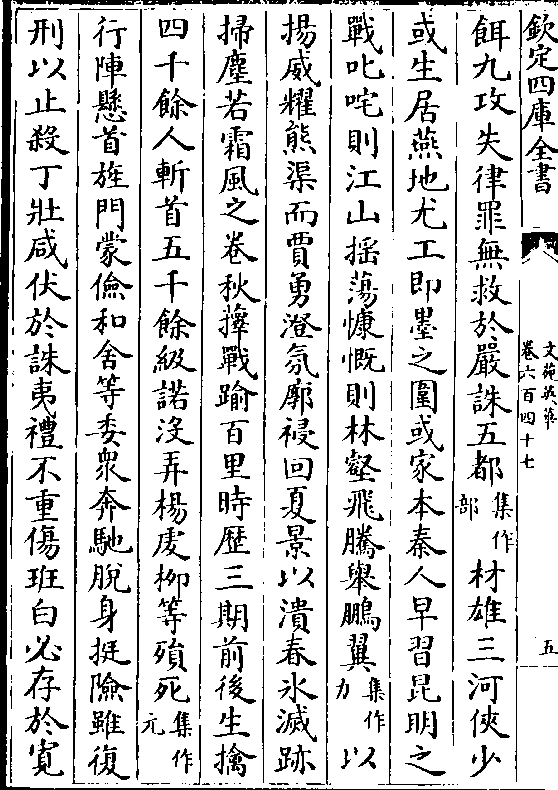 欽定四庫全書
文苑英華
卷六百四十七
五
餌九攻失律罪無救於嚴誅五都集作部材雄三河俠少
或生居燕地尤工即墨之圍或家本秦人早習昆明之
戰叱咤則江山搖蕩慷慨則林壑飛騰舉鵬翼集作力以
揚威耀熊渠而賈勇澄氛廓祲回夏景以潰春氷滅跡
掃塵若霜風之卷秋蘀戰踰百里時歷三期前後生擒
四千餘人斬首五千餘級諾沒弄楊䖍栁等殞死集作元
行陣懸首旌門蒙儉和舍等委衆奔馳脫身挺險雖復
刑以止殺丁壯咸伏於誅夷禮不重傷班白必存於寛